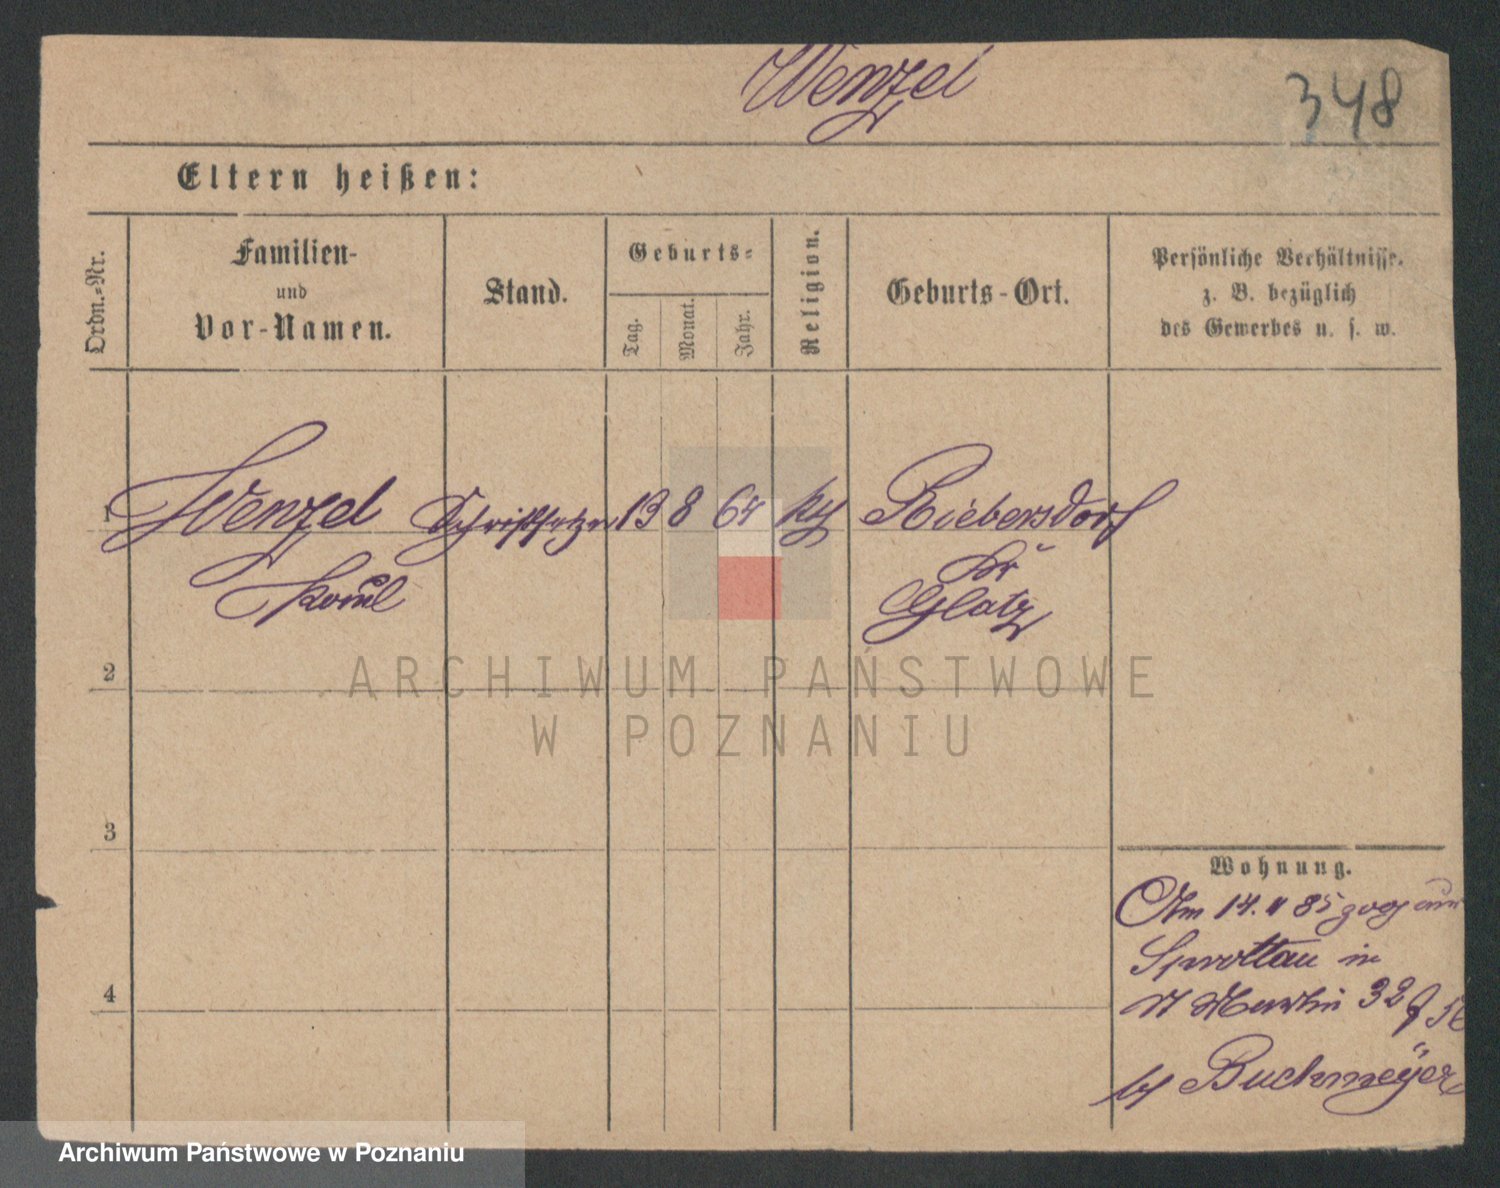 Wenzel
348
Eltern heißen:
Ordn.-Nr.
Familien-
und
Vor-Namen.
Stand.
Geburts-
Tag.
Monat.
Jahr.
Religion.
Geburts-Ort.
Persönliche Verhältnisse.
z. B. bezüglich
des Gewerbes u. s. w.
1 Wenzel Schriftsetzer 13 8 64 kth Riebersdorf
Kr
Paul Glatz
2
3
4
Wohnung.
Am 14. 4 85 zog aus
Sprottau in
St Martin 32
by Buckmeÿer
ARCHIWUM PAŃSTWOWE
W POZNANIU
Archiwum Państwowe w Poznaniu